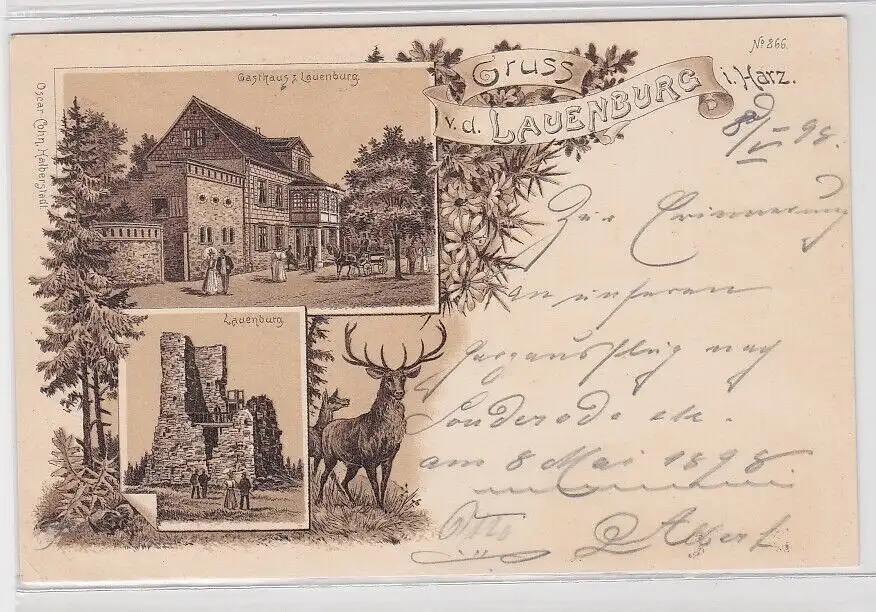 No 866.
Gruss
v. d. LAUENBURG i. Harz.
Gasthaus z Lauenburg.
Oscar Cohn, Halberstadt.
Lauenburg.
8/V 98.
Zur Erinnerung
an unseren
nach
etc.
am 8 Mai 1898
Otto Albert